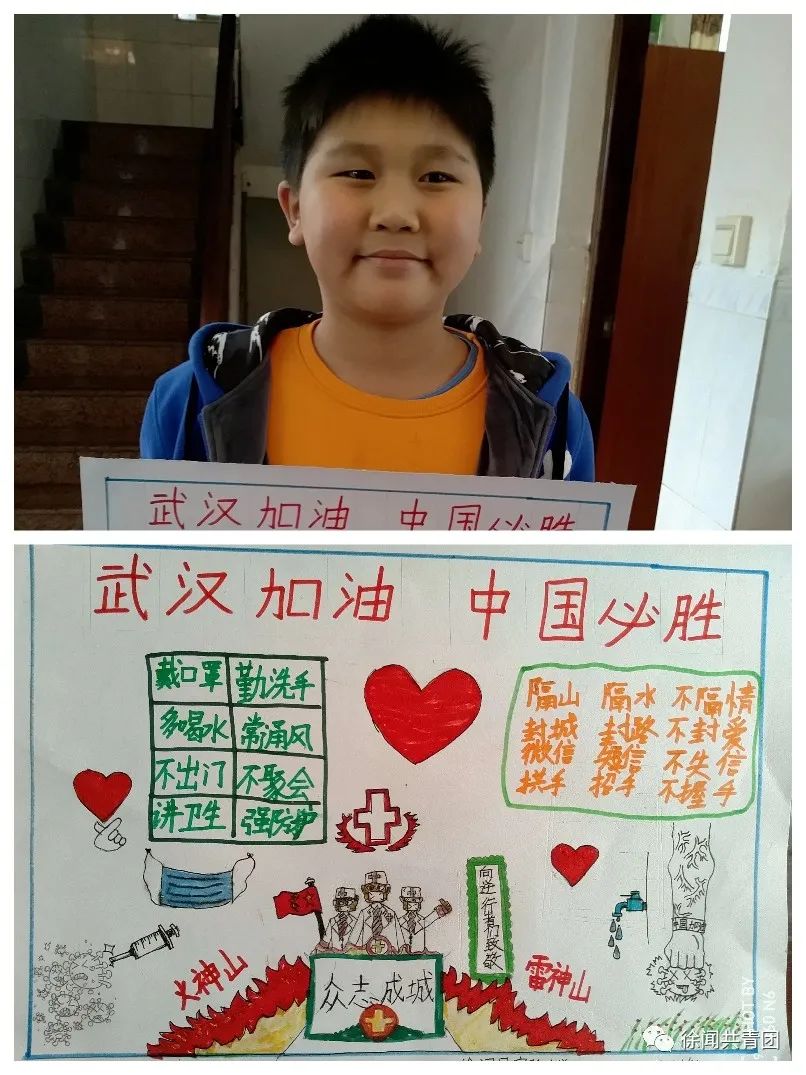 武汉加油 中国必胜
武汉加油 中国必胜
戴口罩 勤洗手
多喝水 常涌风
不出门 不聚会
讲卫生 强防护
隔山 隔水 不隔情
封城 封路 不封爱
微信 短信 不失信
拱手 招手 不握手
向逆行者们致敬
火神山
雷神山
众志成城
徐闻共青团